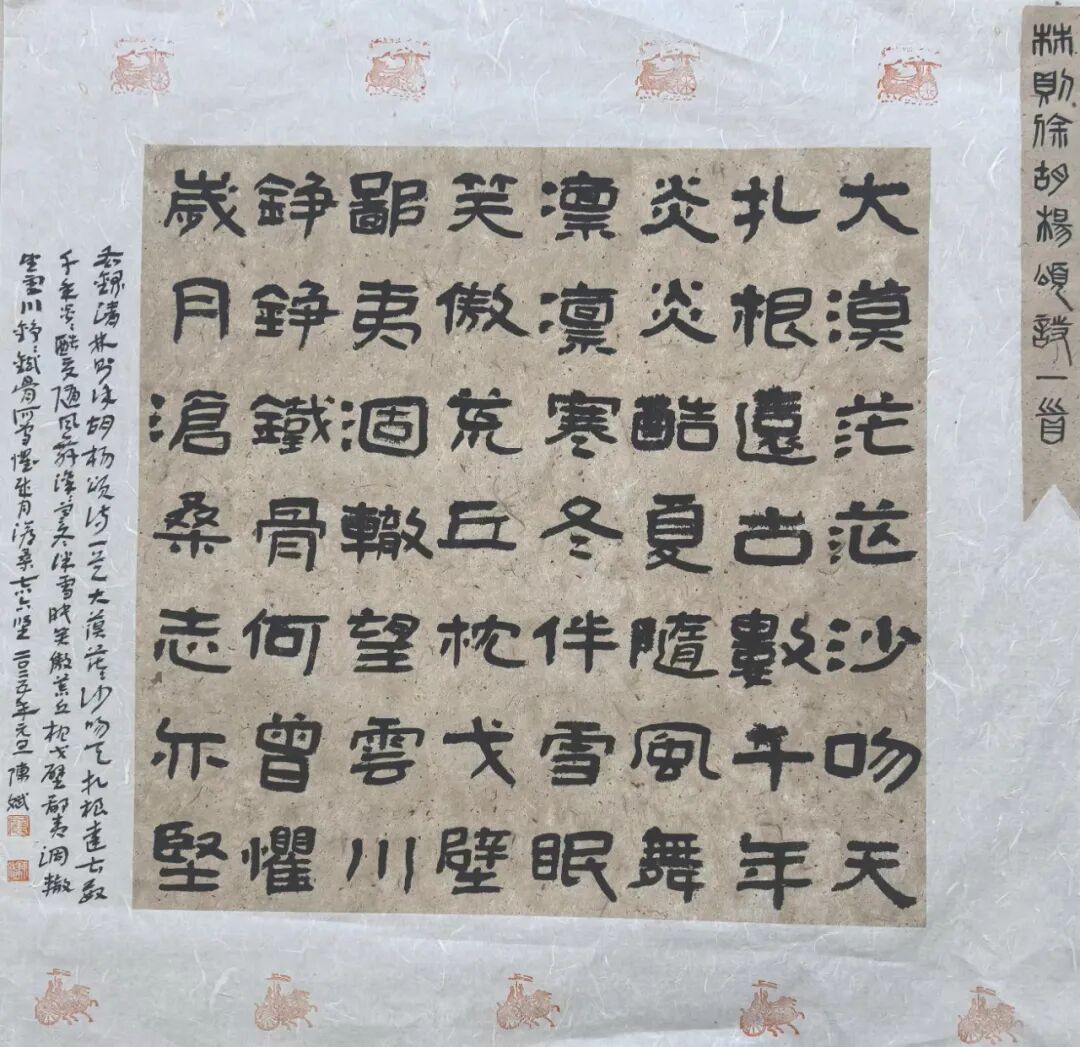 林則徐胡楊頌詩一首
大漠茫茫沙吻天
扎根遠古數千年
炎炎酷夏隨風舞
凛凛寒冬伴雪眠
笑傲荒丘枕戈壁
鄙夷涸轍望雲川
錚錚鐵骨何曾懼
歲月滄桑志亦堅
右錄清林則徐胡楊頌詩一首大漠茫〻沙吻天扎根遠古數
千年炎〻酷夏隨風舞凛〻寒冬伴雪眠笑傲荒丘枕戈壁鄙夷涸轍
望雲川錚〻鐵骨何曾懼歲月滄桑志亦堅二〇二五年元旦陳斌